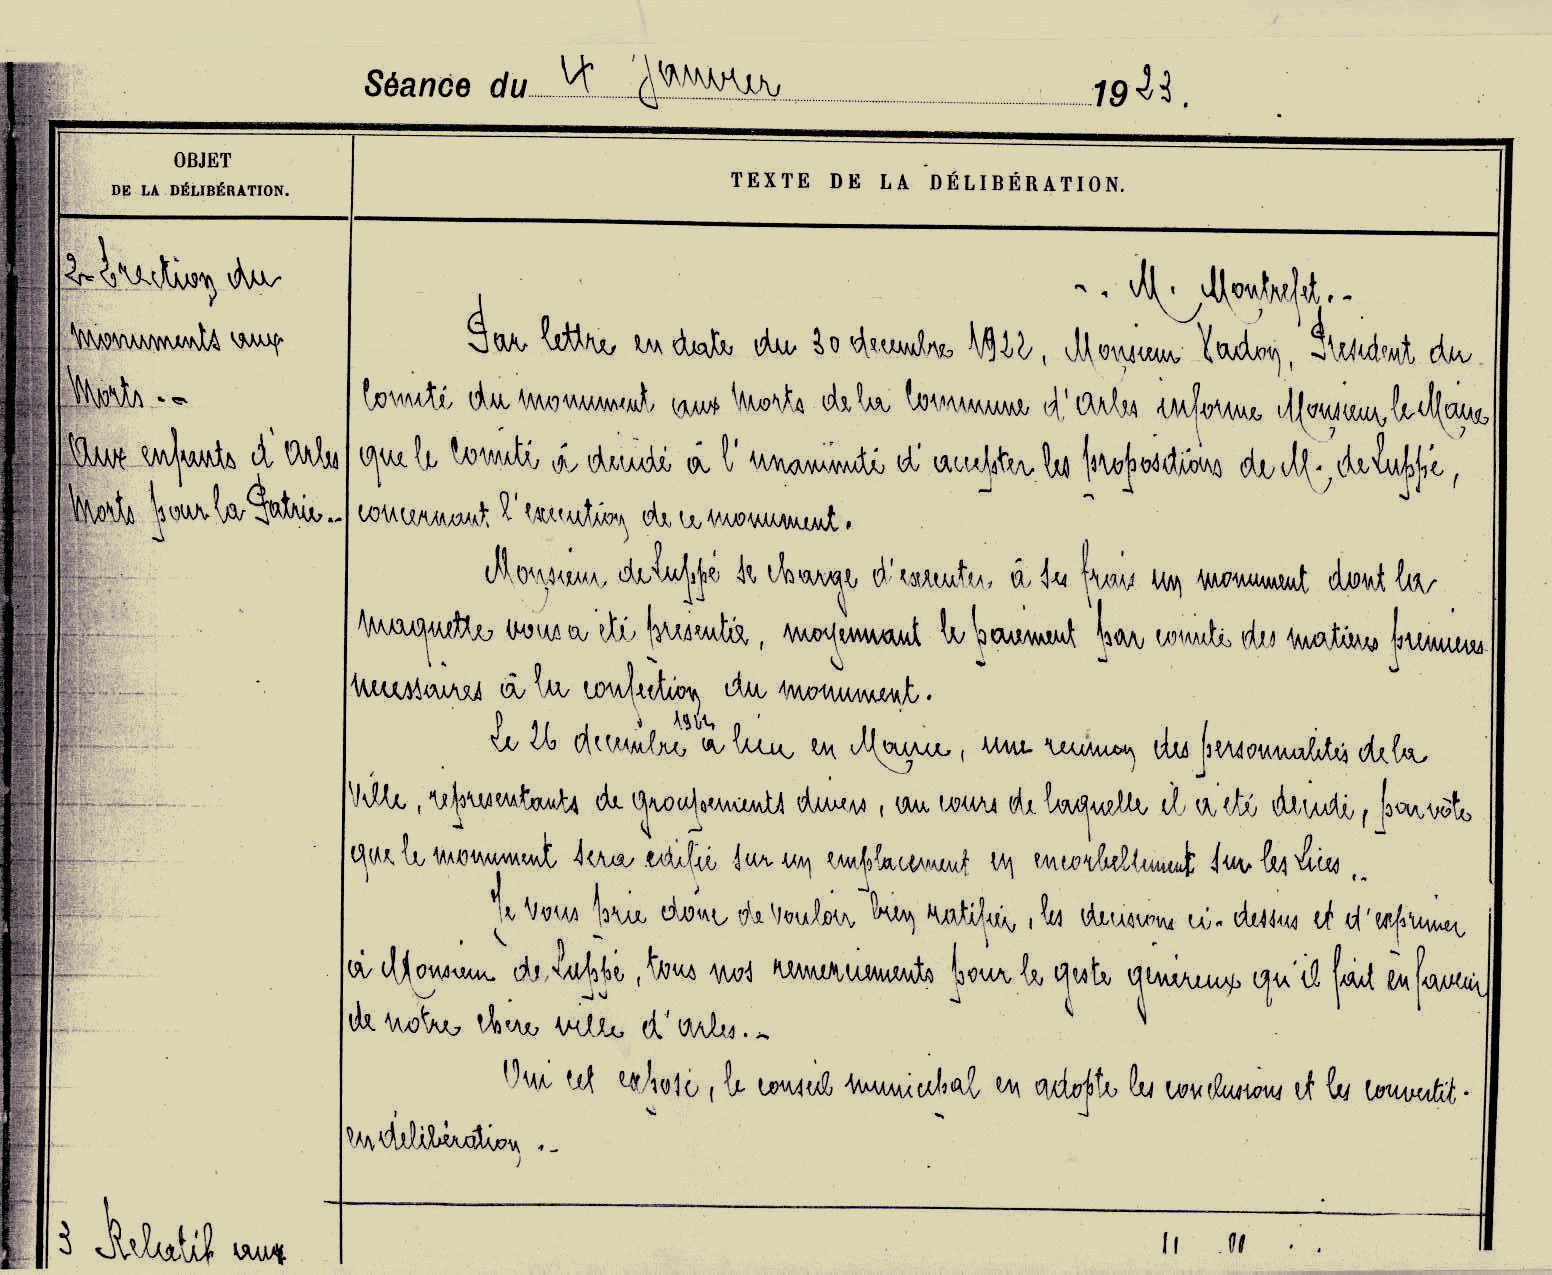 Séance du 4 Janvier 1923.
OBJET
DE LA DÉLIBÉRATION.
TEXTE DE LA DÉLIBÉRATION.
2- Erection du
monuments aux
Morts.-
Aux enfants d'Arles
Morts pour la Patrie..
-. M. Montrefet.-
Par lettre en date du 30 decembre 1922, Monsieur Vadon, Président du
Comité du monument aux Morts de la Commune d'Arles informe Monsieur le Maire
que le Comité à décidé à l'unanimité d'accepter les propositions de M. de Luppé,
concernant l'execution de ce monument.
Monsieur de Luppé se charge d'executer à ses frais un monument dont la
maquette vous a été présentée, moyennant le paiement par comité des matières premières
necessaires à la confection du monument.
Le 26 decembre 1922 à lieu en Mairie, une reunion des personnalités de la
Ville, représentants de groupements divers, au cours de laquelle il a été décidé, par vote
que le monument sera édifié sur un emplacement en encorbellement sur les Lices..
Je vous prie donc de vouloir bien ratifier, les decisions ci-dessus et d'exprimer
à Monsieur de Luppé, tous nos remerciements pour le geste généreux qu'il fait en faveur
de notre chère ville d'Arles.-
Oui cet exposé, le conseil municipal en adopte les conclusions et les convertit.
en délibération..
3 Relatif aux